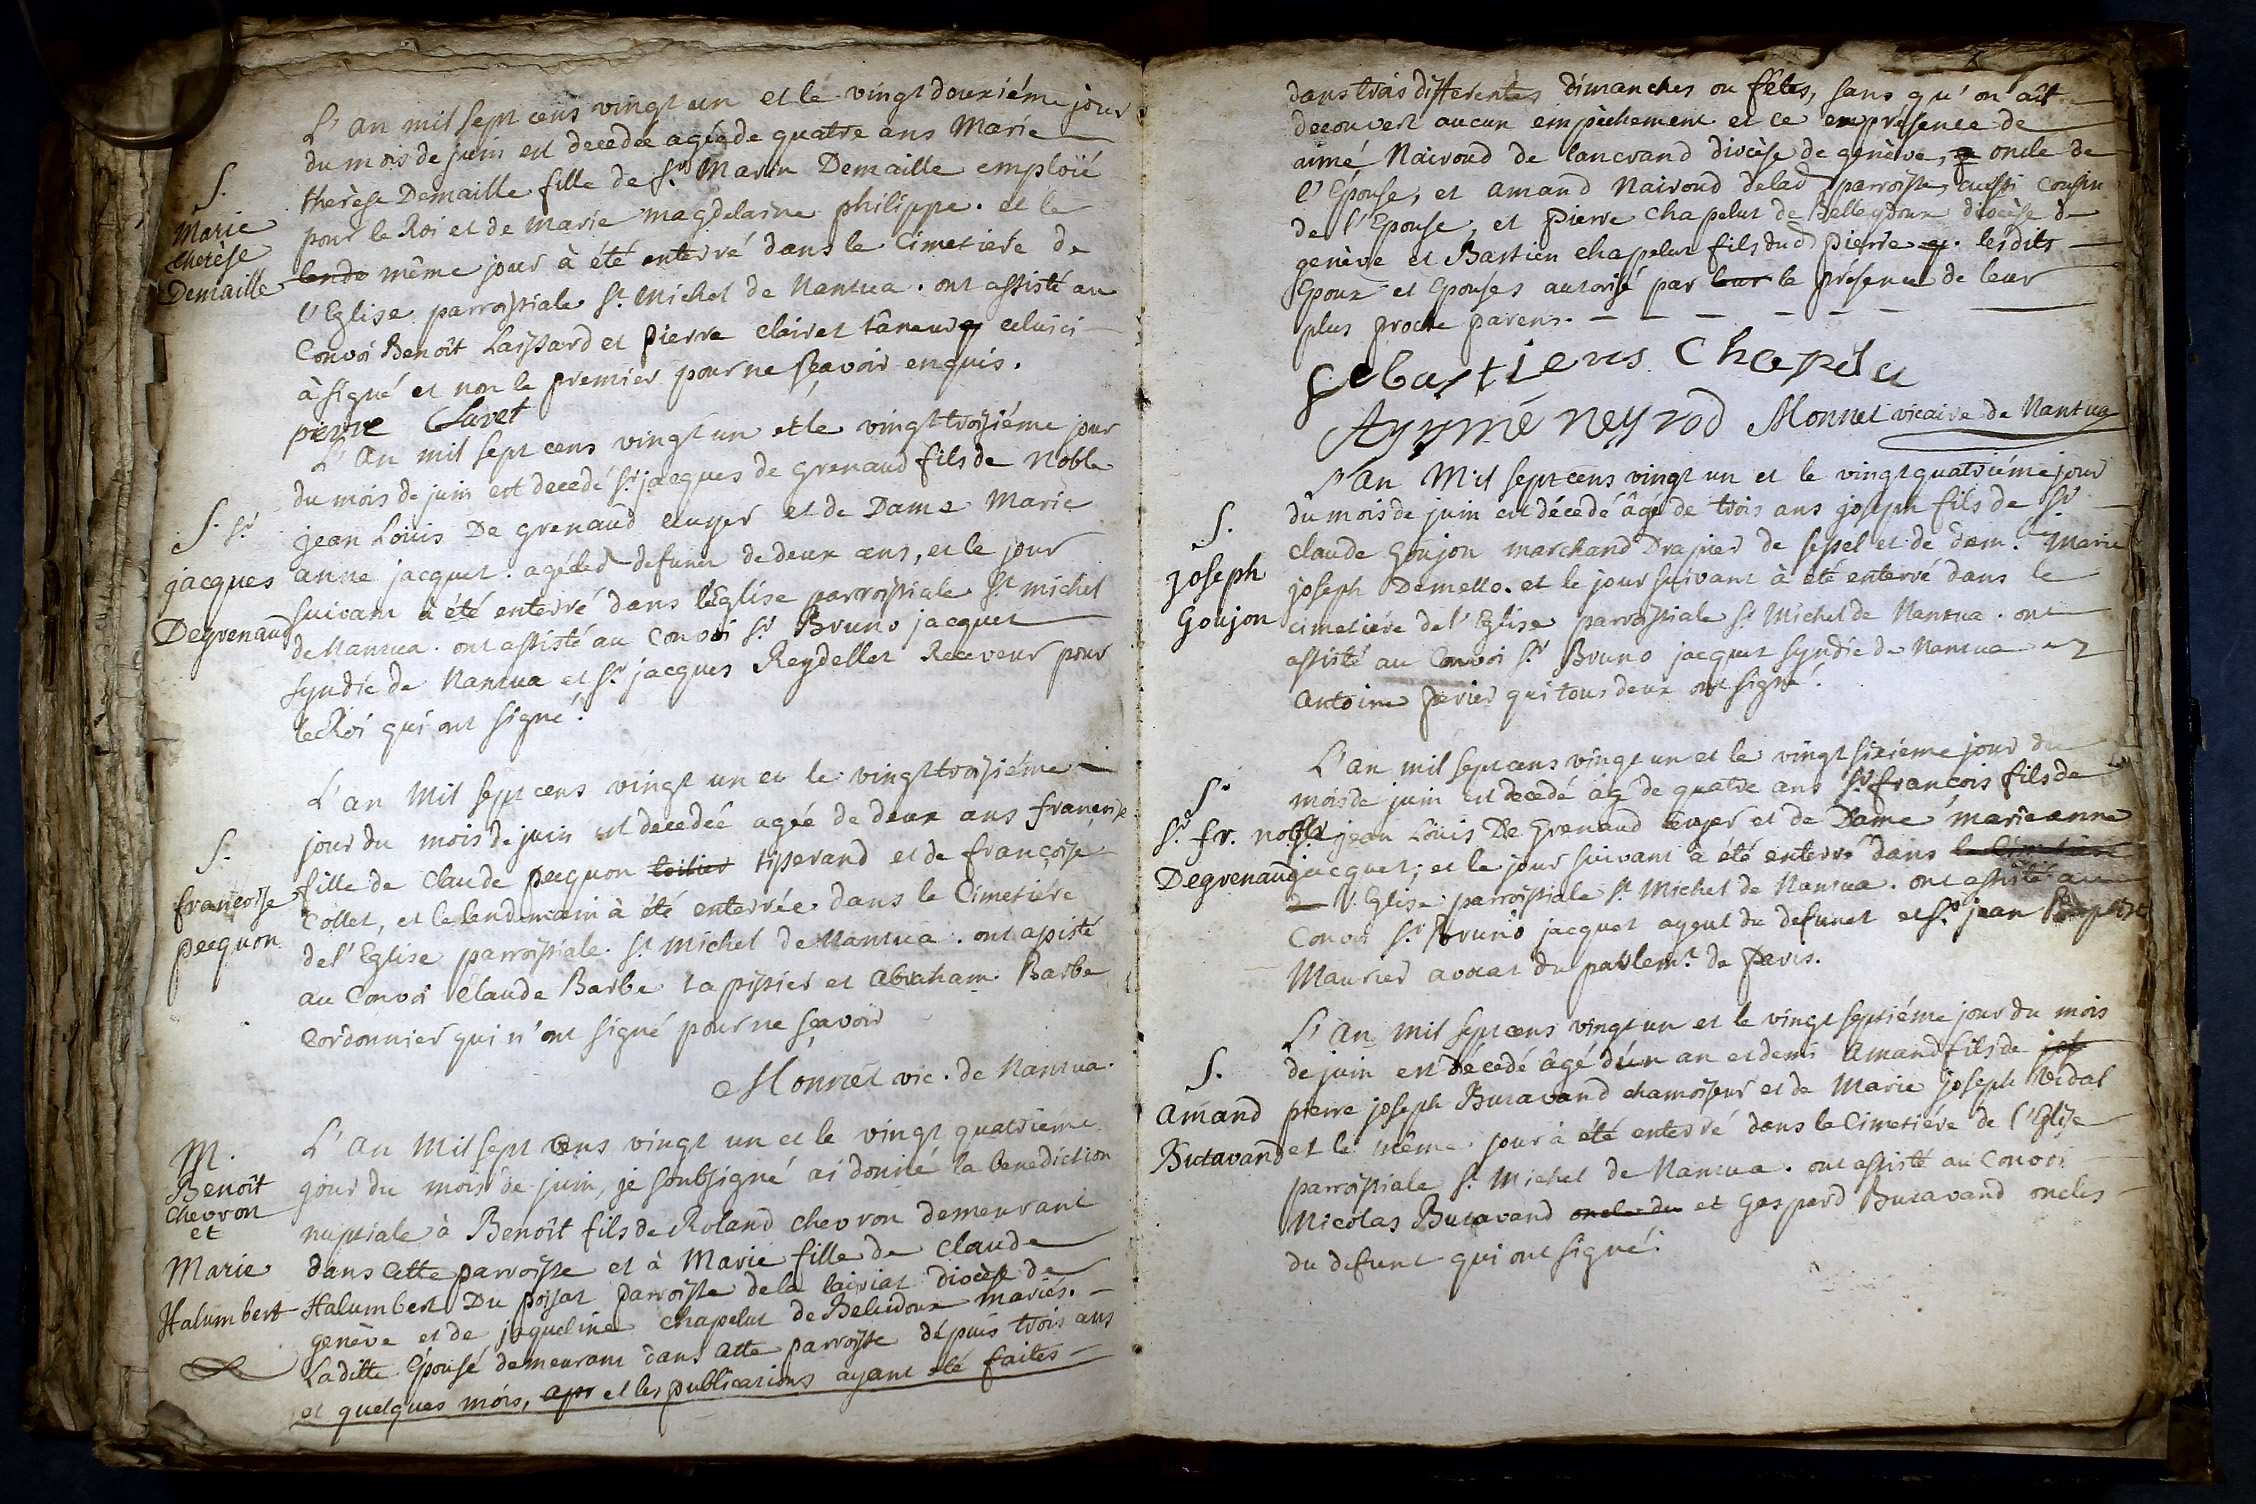 L'an mil sept cens vingt un et le vingt deuxiéme jour
du mois de juin est decedée agée de quatre ans Marie
therèse Demaille fille de Sr. Marin Demaille emploïé
pour le Roi et de Marie magdelaine philippe. et le
même jour à été enterré dans le Cimetiere de
l'Eglise parroissiale St. Michel de Nantua. ont assisté au
Convoi Benoît Laissard et pierre clairet tâneur celui ci
à signé et non le premier pour ne sçavoir enquis.
S.
Marie
therèse
Demaille
pierre Claret
L'an mil sept cens vingt un et le vingt troisiéme jour
du mois de juin est decedé Sr. jacques de grenaud fils de Noble
jean Louis De grenaud ecuyer et de Dame Marie
anne jacquet. agé led. defunct de deux ans, et le jour
suivant à été enterré dans l'Eglise parroissiale St. michel
de Nantua. ont assisté au Convoi Sr. Bruno jacquet
syndic de Nantua et Sr. jacques Reydellet Receveur pour
le Roi qui ont signé.
S. Sr.
jacques
Degrenaud
L'an Mil sept cens vingt un et le vingt troisiéme
jour du mois de juin est decedée agée de deux ans françoise
fille de Claude pecquon toilier tisserand et de françoise
Collet, et le lendemain à été enterrée dans le Cimetiere
de l'Eglise parroissiale St. Michel de Nantua. ont assisté
au Convoi Claude Barbe tapissier et Abraham Barbe
Cordonnier qui n'ont signé pour ne sçavoir
S.
françoise
pecquon
Monnet vic. de Nantua.
L'an Mil sept cens vingt un et le vingt quatriéme
jour du mois de juin, je soubsigné ai donné la benediction
nuptiale à Benoît fils de Roland chevron demeurant
dans cette parroisse et à Marie fille de Claude
Halumbert Du poizat parroisse de la lairiat diocèse de
genève et de jaqueline chapelut de Beleidoux mariés.
Laditte Epouse demeurant dans cette parroisse depuis trois ans
et quelques mois, apr et les publications ayant eté faites
M.
Benoît
Chevron
et
Marie
Halumbert
dans trois differentes dimanches ou fêtes, sans qu'on aît
decouvert aucun empêchement et ce en présence de
aimé Nairoud de lancrand diocèse de genève, oncle de
l'Epouse, et amand Nairoud de lad. parroisse, aussi cousin
de l'Epouse, et pierre chapelut de Bellegdoux diocèse de
genève et Bastien chapelut fils dud. pierre. lesdits
Epoux et Epouses autorisé par leur la présence de leur
plus proche parens.
Sebastiens Chapelu
Aymmé neyrod Monnet vicaire de Nantua
L'an Mil sept cens vingt un et le vingt quatriéme jour
du mois de juin est décedé âgé de trois ans joseph fils de Sr.
Claude Goujon marchand Drapier de sessel et de dem.lle Marie
joseph Demello. et le jour suivant à été enterré dans le
cimetière de l'Eglise parroissiale St. Michel de Nantua. ont
assisté au Convoi Sr. Bruno jacquet syndic de Nantua et
Antoine perier qui tous deux ont signé.
S.
joseph
Goujon
L'an mil sept cens vingt un et le vingt sixieme jour du
mois de juin est decedé âgé de quatre ans Sr. françois fils de
noble jean Louis De Grenaud ecuyer et de Dame marie anne
jacquet; et le jour suivant à été enterré dans le Cimetiere
de l'Eglise parroissiale St. Michel de Nantua. ont assisté au
Convoi Sr. Bruno jacquet ayeul du defunct et Sr. jean Baptiste
Maurier avocat du parlemt. de paris.
S.
Sr. fr.
Degrenaud
L'an mil sept cens vingt un et le vingt septiéme jour du mois
de juin est décedé âgé d'un an et demi Amand fils de jose
pierre joseph Butavand chamoiseur et de Marie joseph Vidal
et le même jour à été enterré dans le Cimetiére de l'Eglise
parroissiale St. Michel de Nantua. ont assisté au Convoi
Nicolas Butavand oncle du et Gaspard Butavand oncles
du defunct qui ont signé.
S.
Amand
Butavand